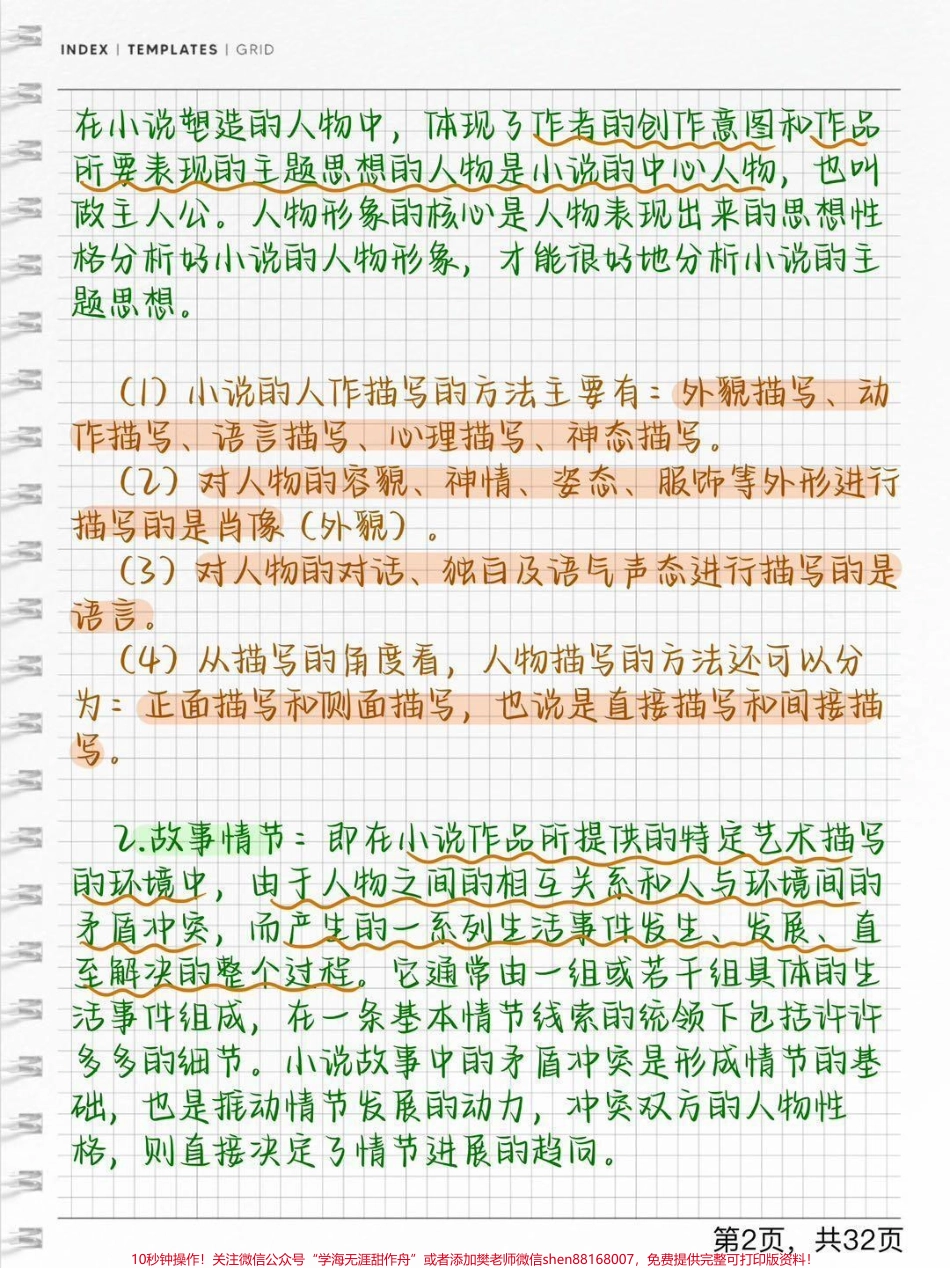 INDEX | TEMPLATES | GRID
在小说塑造的人物中，体现了作者的创作意图和作品
所要表现的主题思想的人物是小说的中心人物，也叫
做主人公。人物形象的核心是人物表现出来的思想性
格分析好小说的人物形象，才能很好地分析小说的主
题思想。
（1）小说的人作描写的方法主要有：外貌描写、动
作描写、语言描写、心理描写、神态描写。
（2）对人物的容貌、神情、姿态、服饰等外形进行
描写的是肖像（外貌）。
（3）对人物的对话、独白及语气声态进行描写的是
语言。
（4）从描写的角度看，人物描写的方法还可以分
为：正面描写和侧面描写，也说是直接描写和间接描
写。
2.故事情节：即在小说作品所提供的特定艺术描写
的环境中，由于人物之间的相互关系和人与环境间的
矛盾冲突，而产生的一系列生活事件发生、发展、直
至解决的整个过程。它通常由一组或若干组具体的生
活事件组成，在一条基本情节线索的统领下包括许许
多多的细节。小说故事中的矛盾冲突是形成情节的基
础，也是推动情节发展的动力，冲突双方的人物性
格，则直接决定了情节进展的趋向。
第2页，共32页
10秒钟操作！关注微信公众号“学海无涯甜作舟”或者添加樊老师微信shen88168007，免费提供完整可打印版资料！